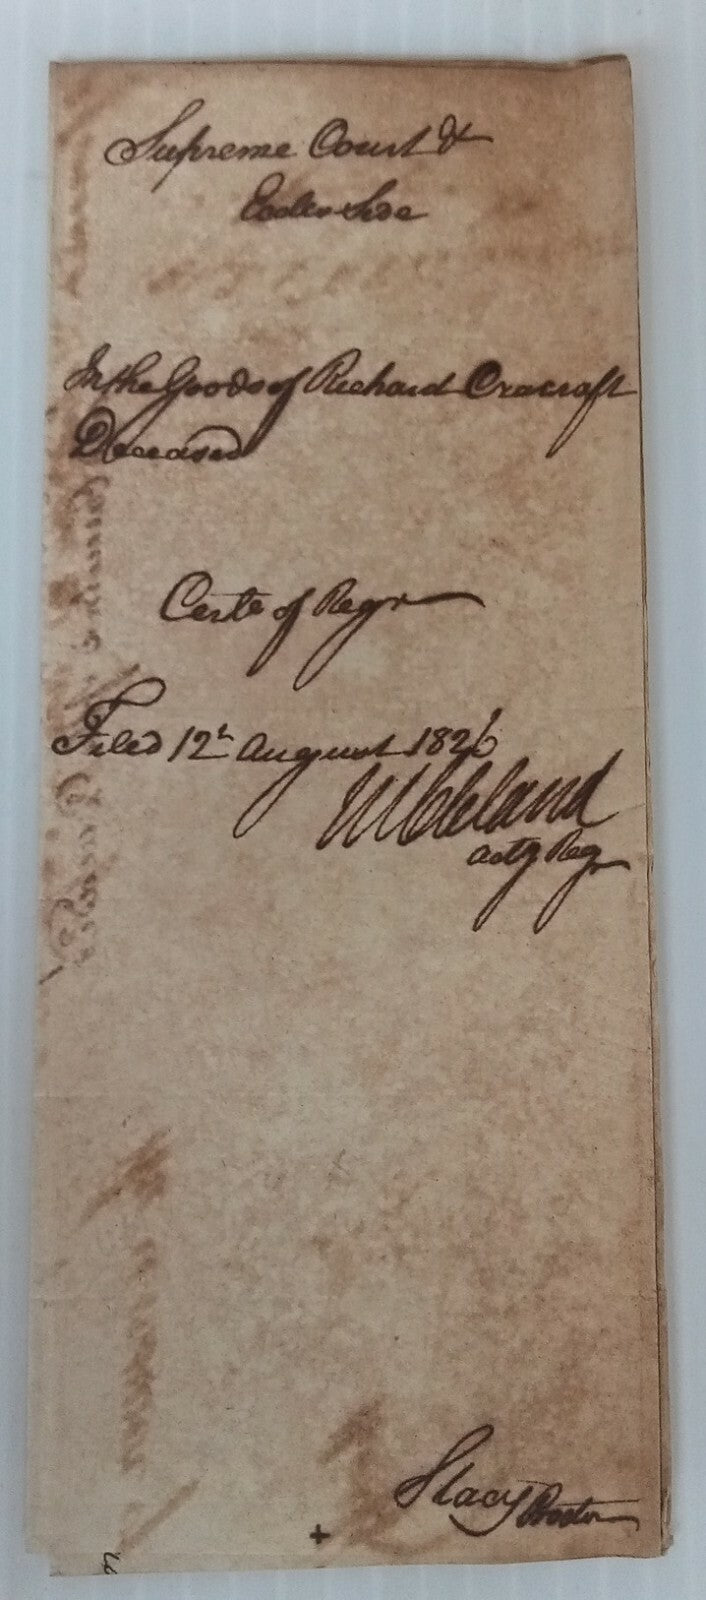 Supreme Court &
Eccles Side
In the Goods of Richard Cracraft
Deceased
Certe of Regr
Filed 12th August 1826
Cleland
actg Regr
Stacy Proctor
+